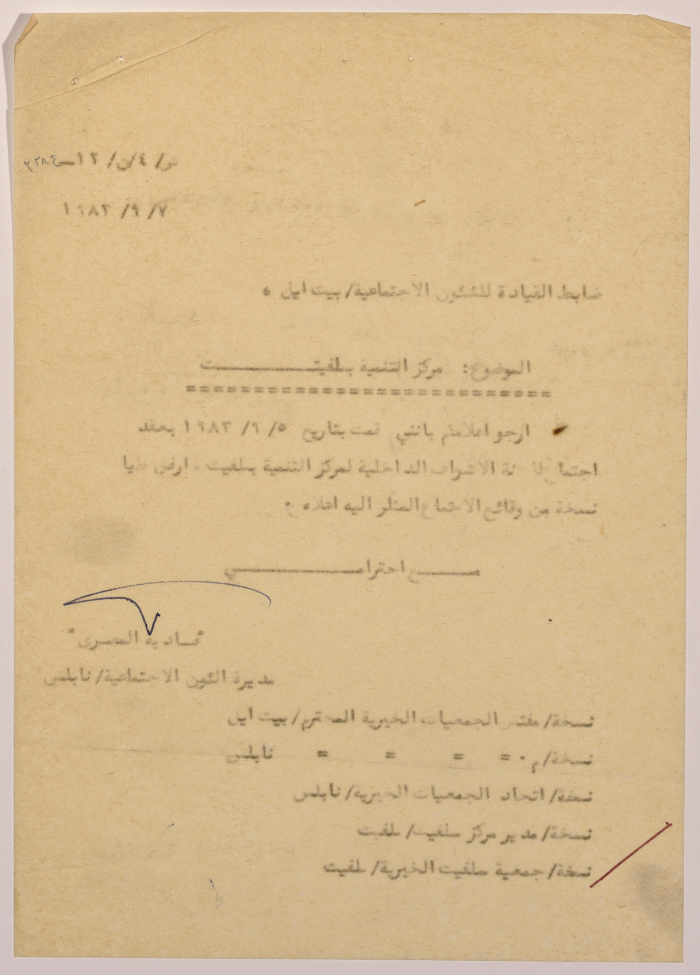 ن/ ٤/ن/ ١٢ــ
١٩٨٣ /٩ /٧
ضابط القيادة للشئون الاجتماعية/ بيت ايل ٠
الموضوع: مركز التنمية بسلفيـــــــــت
=============================
ارجو اعلامكم بانني قمت بتاريخ ٥/ ٩/ ١٩٨٣ بعقد
اجتماع للجنة الاشراف الداخلية لمركز التنمية بسلفيت ، ارفق طيا
نسخة من وقائع الاجتماع المشار اليه اعلاه ٠
مـــــع احترامـــــــــــي
المصري"
مديرة الشئون الاجتماعية/ نابلس
نسخة/ مفتش الجمعيات الخيرية المحترم/ بيت ايل
نسخة/ م ٠ = = = = نابلس
نسخة/ اتحاد الجمعيات الخيرية/ نابلس
نسخة/ مدير مركز سلفيت/ سلفيت
نسخة/ جمعية سلفيت الخيرية/ سلفيت